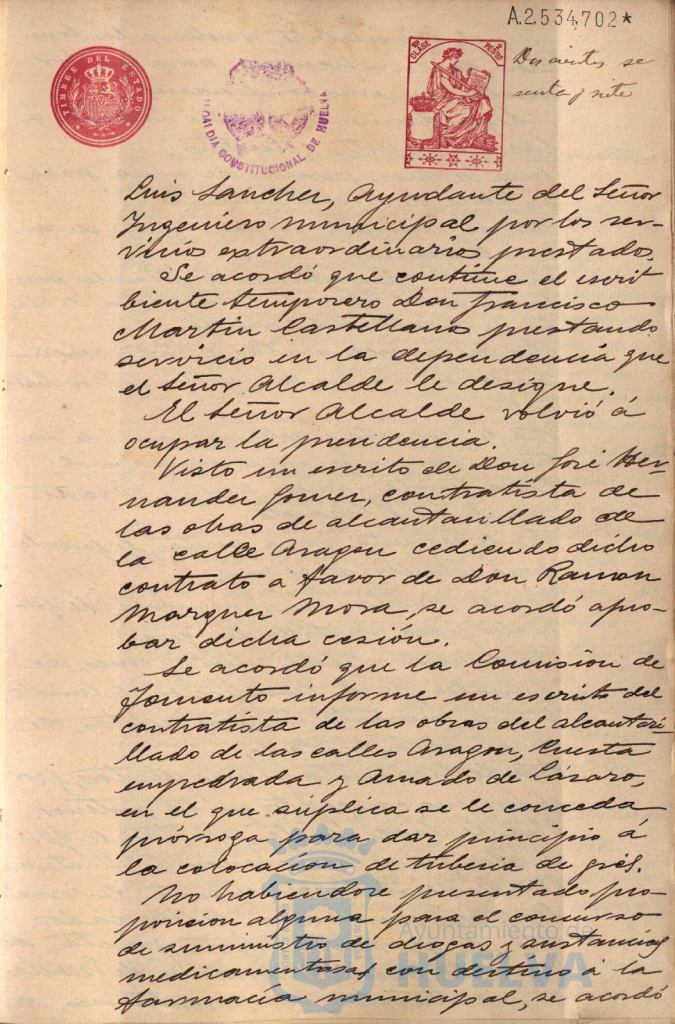 A.2.534.702*
TIMBRE DEL ESTADO
ALCALDIA CONSTITUCIONAL DE HUELVA
10ª CLASE
2 PESETAS
Doscientos se
senta y siete
Luis Sanchez, Ayudante del Señor
Ingeniero municipal por los ser-
vicios extraordinarios prestados.
Se acordó que continúe el escri
biente temporero Don Francisco
Martin Castellano prestando
servicio en la dependencia que
el Señor Alcalde le designe.
El Señor Alcalde volvió á
ocupar la presidencia.
Visto un escrito de Don José Her-
nandez Gomez, contratista de
las obras de alcantarillado de
la calle Aragon cediendo dicho
contrato a favor de Don Ramon
Marquez Mora, se acordó apro-
bar dicha cesión.
Se acordó que la Comision de
Fomento informe un escrito del
contratista de las obras del alcantari-
llado de las calles Aragon, Cuesta
empedrada y Amado de Lázaro,
en el que suplica se le conceda
prórroga para dar principio á
la colocacion de tuberia de grés.
No habiendose presentado pro-
posicion alguna para el concurso
de suministro de drogas y sustancias
medicamentosas con destino á la
farmacia municipal, se acordó
Ayuntamiento de
HUELVA